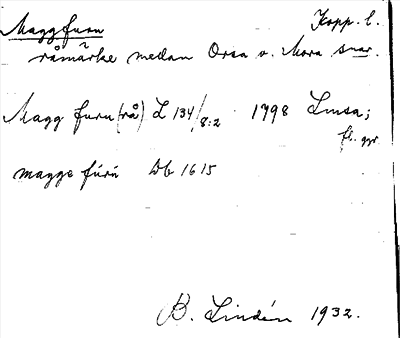 Maggfuru Kopp. l.
råmärke mellan Orsa o. Mora snar.
Magg furu (rå) L 134/8:2 1798 Lmsa;
fl. ggr
magge fúrú Db 1615
B. Lindén 1932.